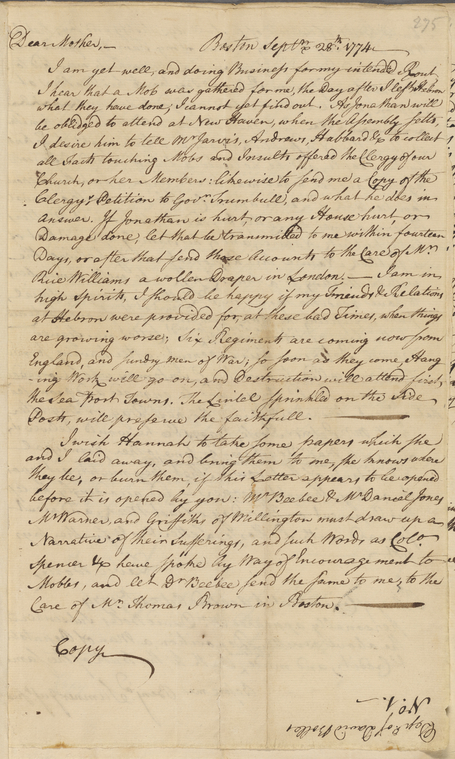 295
Dear Mother,— Boston Septr. 28th. 1774
I am yet well, and doing Business for my intended Rout
I hear that a Mob was gathered for me, the Day after I left Hebron
what they have done, I cannot yet find out. As Jonathan will
be obliged to attend at New Haven, when the Assembly setts,
I desire him to tell Mr Jarvis, Andrews, Hubbard &c to collect
all Facts touching Mobs and Insults offered the Clergy of our
Church, or her Members: likewise to send me a Copy of the
Clergys Petition to Govr. Trumbull, and what he does in
Answer. If Jonathan is hurt, or any House hurt, or
Damage done, let that be transmitted to me within fourteen
Days, or after that send those Accounts to the Care of Mr.
Rice Williams a wollen Draper in London.— I am in
high Spirits, I should be happy if my Friends & Relations
at Hebron were provided for, at these bad Times, when things
are growing worse; Six Regiments are coming now from
England, and sundry Men of War; so soon as they come, Hang
-ing Work will go on, and Destruction will attend first
the Sea Port Towns. The Lintel sprinkled on the Side
Posts, will preserve the faithfull.
I wish Hannah to take some papers which she
and I laid away, and bring them to me, she knows where
they be, or burn them, if this Letter appears to be opened
before it is opened by you: Mr Beebee & Mr Daniel Jones
Mr Warner, and Griffiths of Willington must draw up a
Narrative of their Sufferings, and such Words as Colo.
Spencer &c have spoke by Way of Encouragement to
Mobbs, and let Dr Beebee send the same to me, to the
Care of Mr. Thomas Brown in Boston.
Copy
No. 1.
Copy of David Bolles